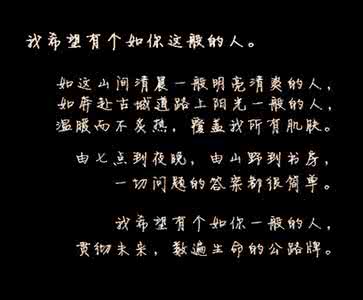 我希望有个如你这般的人。
如这山间清晨一般明亮清爽的人，
如奔赴古城道路上阳光一般的人，
温暖而不炙热，覆盖我所有肌肤。
由七点到夜晚，由山野到书房，
一切问题的答案都很简单。
我希望有个如你一般的人，
贯彻未来，数遍生命的公路牌。